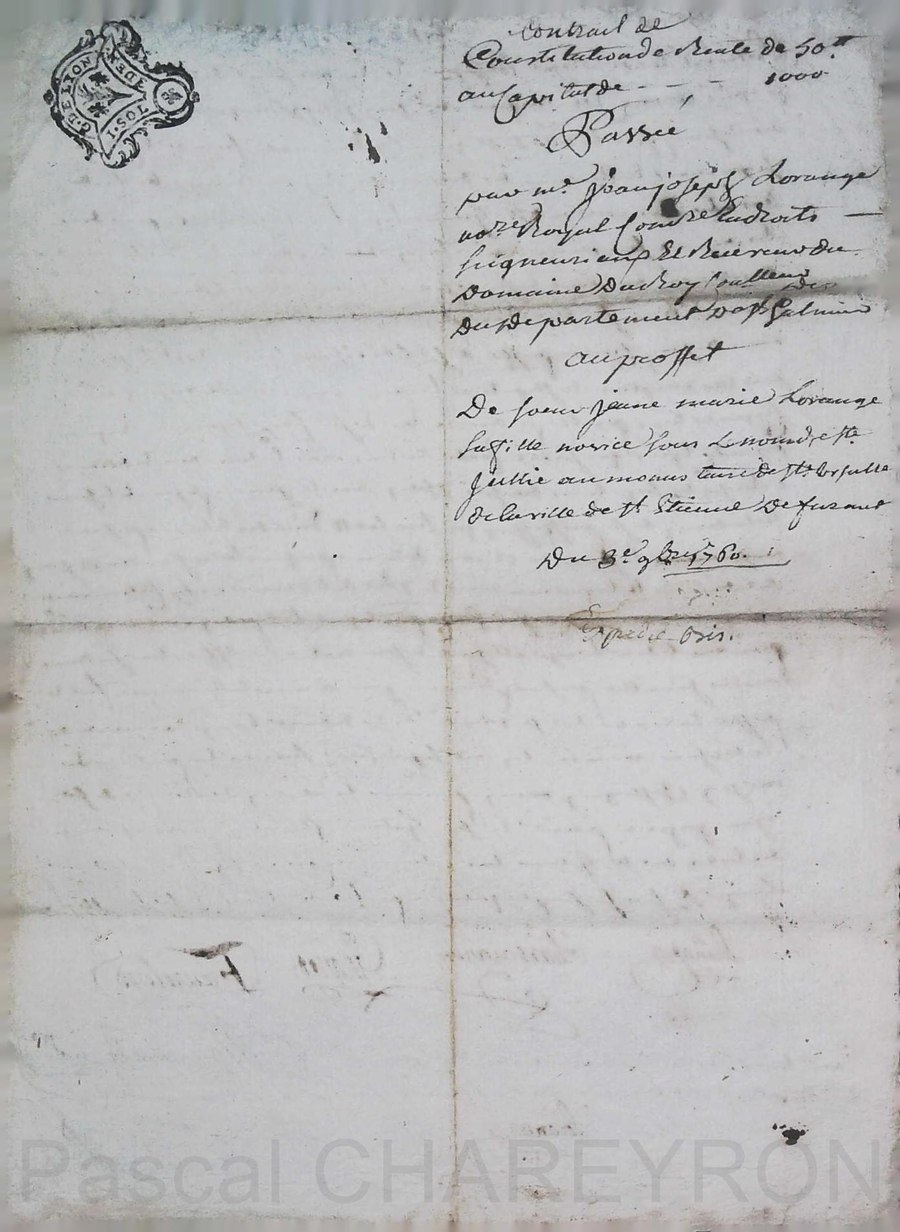 G. DE LYON
I·SOL
VI DEN
Contrait de
Constitution de Rente de 50tt
au Capital de - - - 1000
Passée
par me. Jean joseph Lorange
nore Royal Comre En droits
seigneuriaux Et Receveur du
Domaine Du Roy
Du Departement De St Galmier
au proffet
De soeur jeane marie Lorange
sa fille novice sous le nom de Ste
Jullie au monastaire de Ste Ursulle
de la ville de St Etienne De furant
Du 3e. 9bre 1760.
Expedié bis.
Pascal CHAREYRON